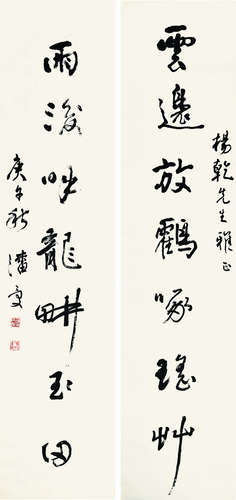 楊乾先生雅正
雲邊放鸖啄瑤草
雨後呼龍畊玉田
庚午秋潘受